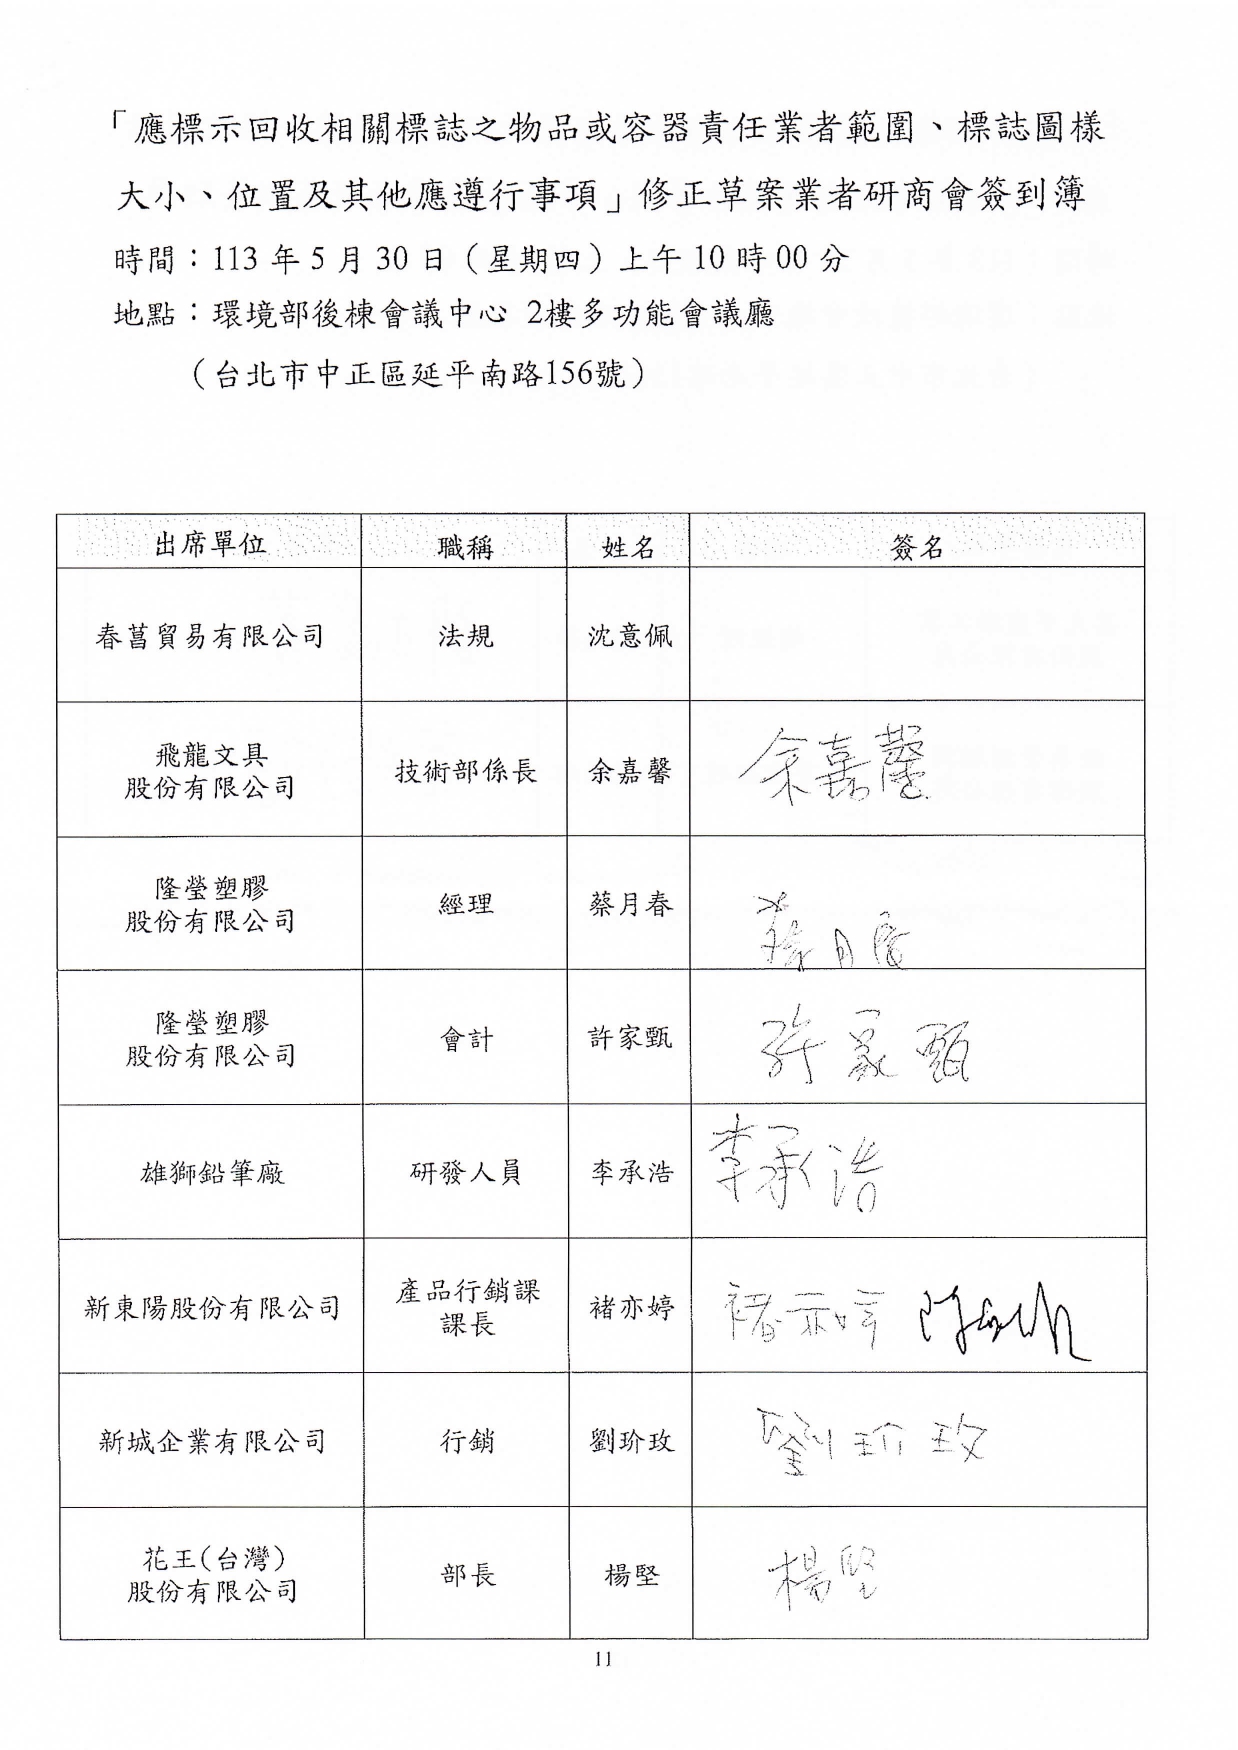 「應標示回收相關標誌之物品或容器責任業者範圍、標誌圖樣
大小、位置及其他應遵行事項」修正草案業者研商會簽到簿
時間：113 年 5 月 30 日（星期四）上午 10 時 00 分
地點：環境部後棟會議中心 2樓多功能會議廳
（台北市中正區延平南路156號）
出席單位 職稱 姓名 簽名
春菖貿易有限公司 法規 沈意佩
飛龍文具
股份有限公司 技術部係長 余嘉馨 余嘉馨
隆瑩塑膠
股份有限公司 經理 蔡月春 蔡月春
隆瑩塑膠
股份有限公司 會計 許家甄 許家甄
雄獅鉛筆廠 研發人員 李承浩 李承浩
新東陽股份有限公司 產品行銷課
課長 褚亦婷 褚亦婷
新城企業有限公司 行銷 劉玠玫 劉玠玫
花王(台灣)
股份有限公司 部長 楊堅 楊堅
11